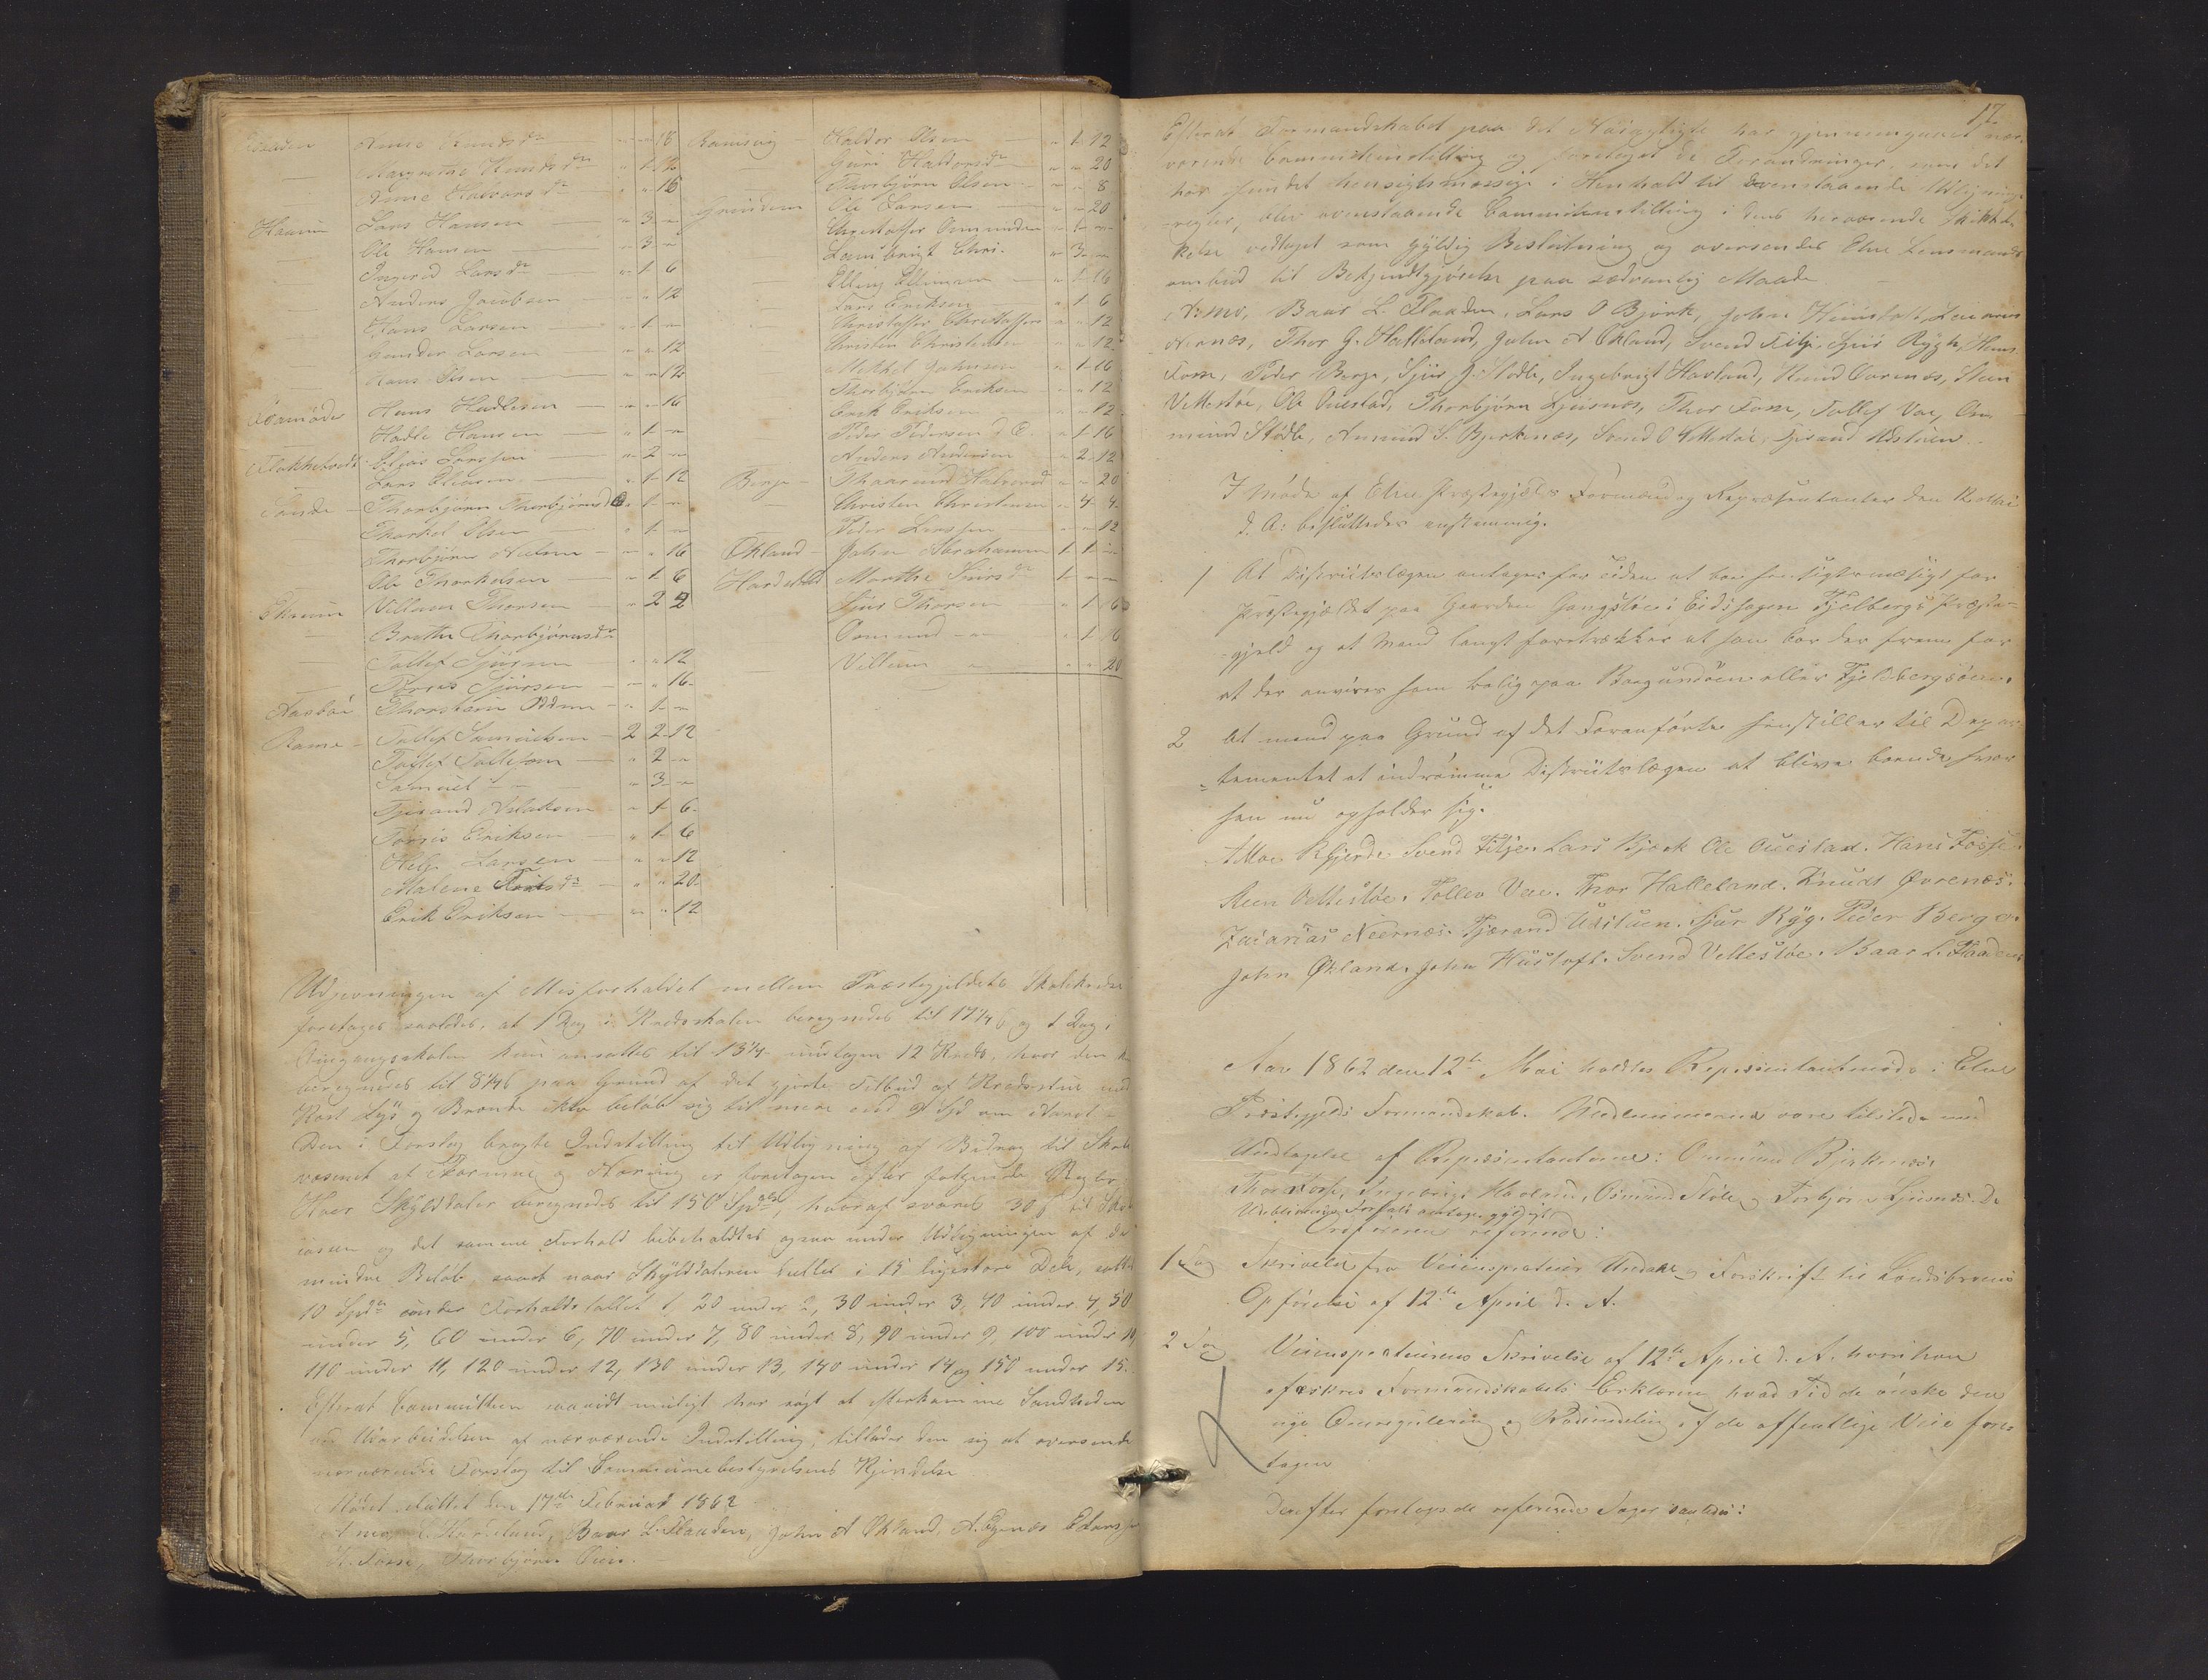 Anne Knudsdr " " 18
Margrethe Knudsdr " 1 12
Anne Halvorsdr " " 16
Haavin Lars Hansen " 3 "
Ole Hansen " 3 "
Ingerid Larsdr " 1 6
Anders Jacobsen " " 12
Hans Larsen " 1 "
Gunder Larsen " " 12
Hans Olsen " " 12
Hans Hadlesen " " 16
Hadle Hansen " 1 "
Elias Larssen " 2 "
Lars Eliasen " 1 12
Sande Thorbjørn Thorbjørns " 1 "
Thorkel Olsen " 1 "
Thorbjørn Nilsen " " 16
Ole Thorkelsen " 1 6
Villum Thorsen " 2 2
Brethe Thorbjørnsdr
Tollef Sjursen " " 12
Sjursen " " 16
Thorstein " 1 "
Rame Tollef Samuelsen 2 2 12
Tollef Tollefsen " 2 "
Samuel " 3 "
Tjerand Aslaksen " 1 6
Torris Eriksen " 1 6
Helje Larsen " " 12
Malene " " 20
Erik Eriksen " " 12
Ramsvig Haldor Olsen " 1 12
Guri Haldorsdr " " 20
Thorbjørn Olsen " " 8
Grindem Ole Larsen " " 20
Christoffer Ommundsen " 1 "
Lambrigt Chri. " 3 "
Elling Ellingsen " 1 16
Lars Eriksen " 1 6
Christoffer Christoffers " " 12
Christen Christensen " " 12
Mikkel Johnsen " 1 16
Thorbjørn Eriksen " " 12
Erik Eriksen " " 12
Peder Pedersen d. E. " 1 16
Anders Andersen " 2 12
Berge " " 20
Christen Christensen " 4 4
Peder Larssen " " 12
Økland John Abrahamsen 1 1 "
Hardeland Marthe Sjursdr 1 " "
Sjur Thorsen " 1 16
Ommund " 1 16
Villum " " 20
Udjevningen af Misforholdet mellem Præstegjeldets Skolekredse
foretages saaledes, at 1 Dag i Kredsskolen beregnedes til 17¼ ß og 1 Dag i
Omgangsskolen kun ansattes til 13¼ undtagen 12 Kreds, hvor den
beregnedes til 8¼ ß paa Grund af det gjorte Tilbud af Kredsstue med
Kost Lys og Brænde ikke beløb sig til mere end 9 Spd om Aaret
Den i Forslag bragte Indstilling til Udligning af Bidrag til Skole
væsenet af Formue og Næring er foretagen efter følgende Regler
Hver Skylddaler beregnedes til 150 Spd, hvoraf svares 30 ß til Skole
kassen og det samme Forhold bibeholdtes ogsaa under Udligningen af de
mindre Beløb, saaat naar Skylddaleren deeltes i 15 ligestore Dele, sattes
10 Spd under Forholdstallet 1, 20 under 2, 30 under 3, 40 under 4, 50
under 5, 60 under 6, 70 under 7, 80 under 8, 90 under 9, 100 under 10,
110 under 11, 120 under 12, 130 under 13, 140 under 14 og 150 under 15.
Efterat Committeen saavidt muligt har søgt at efterkomme Sandheden
ved Udarbeidelsen af nærværende Indstilling, tillader den sig at oversende
nærværende Forslag til Communebestyrelsens Kjendelse
Mødet sluttet den 17de Februar 1862
Baar L. Flaaden, John A Økland,
H. Fosse, Thorbjørn
17.
Efterat Formandskabet paa det Nøiagtigste har gjennemgaaet nær-
værende Committeindstilling og foretaget de Forandringer, som det
har fundet hensigtsmæssige i Henhold til ovenstaaende Udlignings
regler, blev ovenstaaende Committeindstilling i dens heraværende Skikk-
kelse vedtaget som gyldig Beslutning og oversendes Elne Lensmands
ombud til Bekjendtgjørelse paa sædvanlig Maade.
Baar L. Flaaden, Lars O Bjørk, John Hustoft, Zacarias
Nernæs, Thor G. Halleland, John A Økland, Svend Fitje, Sjur Rygh, Hans
Fosse, Peder Berge, Sjur J. Stødle, Ingebrigt Havland, Knud Øvrenæs, Steen
Vettestøe, Ole Ouestad, Thorbjørn Ljusnæs, Thor Fosse, Tollef Vae, Om-
mund Stødle, Ammund S. Bjerkenæs, Svend O Vettestøe, Tjerand Udstuen
I Møde af Elne Præstegjelds Formænd og Repræsentanter den 12 Mai
d. A: besluttedes eenstemmig:
1 At Districtslægen antages for tiden at boe hensigtsmæsigt for
Præstegjældet paa Gaarden Gangstøe i Eidsfogen Fjelbergs Præste-
gjeld og at Mand langt foretrækker at han bor der frem for
at der anvises ham bolig paa Borgundøen eller Fjelbergsøen.
2 At mand paa Grund af det Foranførte henstiller til Depar-
tementet at indrømme Districtslægen at blive boende hvor
han nu opholder sig.
Svend Fitje. Lars Bjørk Ole Ouestad. Hans Fosse.
Steen Vettestøe. Tollev Vae. Thor Halleland. Knudt Øvrenæs.
Zacarias Neernæs. Tjærand Udstuen. Sjur Ryg. Peder Berge.
John Økland. John Hustoft. Svend Vettestøe. Baar L. Flaaden.
Aar 1862 den 12te Mai holdtes Repræsentantmøde i Elne
Præstegjelds Formandskab. Medlemmerne vare tilstede med
Undtagelse af Repræsentanterne: Ommund Bjerkenæs,
Thor Fosse, Ingebrigt Havland, Osmund Støle og Torbjørn Ljusnæs. De
Udeblevnes Forfald antages gyldigt
Ordføreren refererede:
1 Sag Skrivelse fra Veiinspecteur Undall og Forskrift til Landsbroens
Opførelse af 12te April d. A.
2 Sag Veiinspecteurens Skrivelse af 12te April d. A. hvori han
æskes Formandskabets Erklæring hvad Tid de ønske den
nye Omregulering og Rodeinddeling af de offentlige Veie fore-
tagen
Derefter foretoges de refererede Sager saaledes: